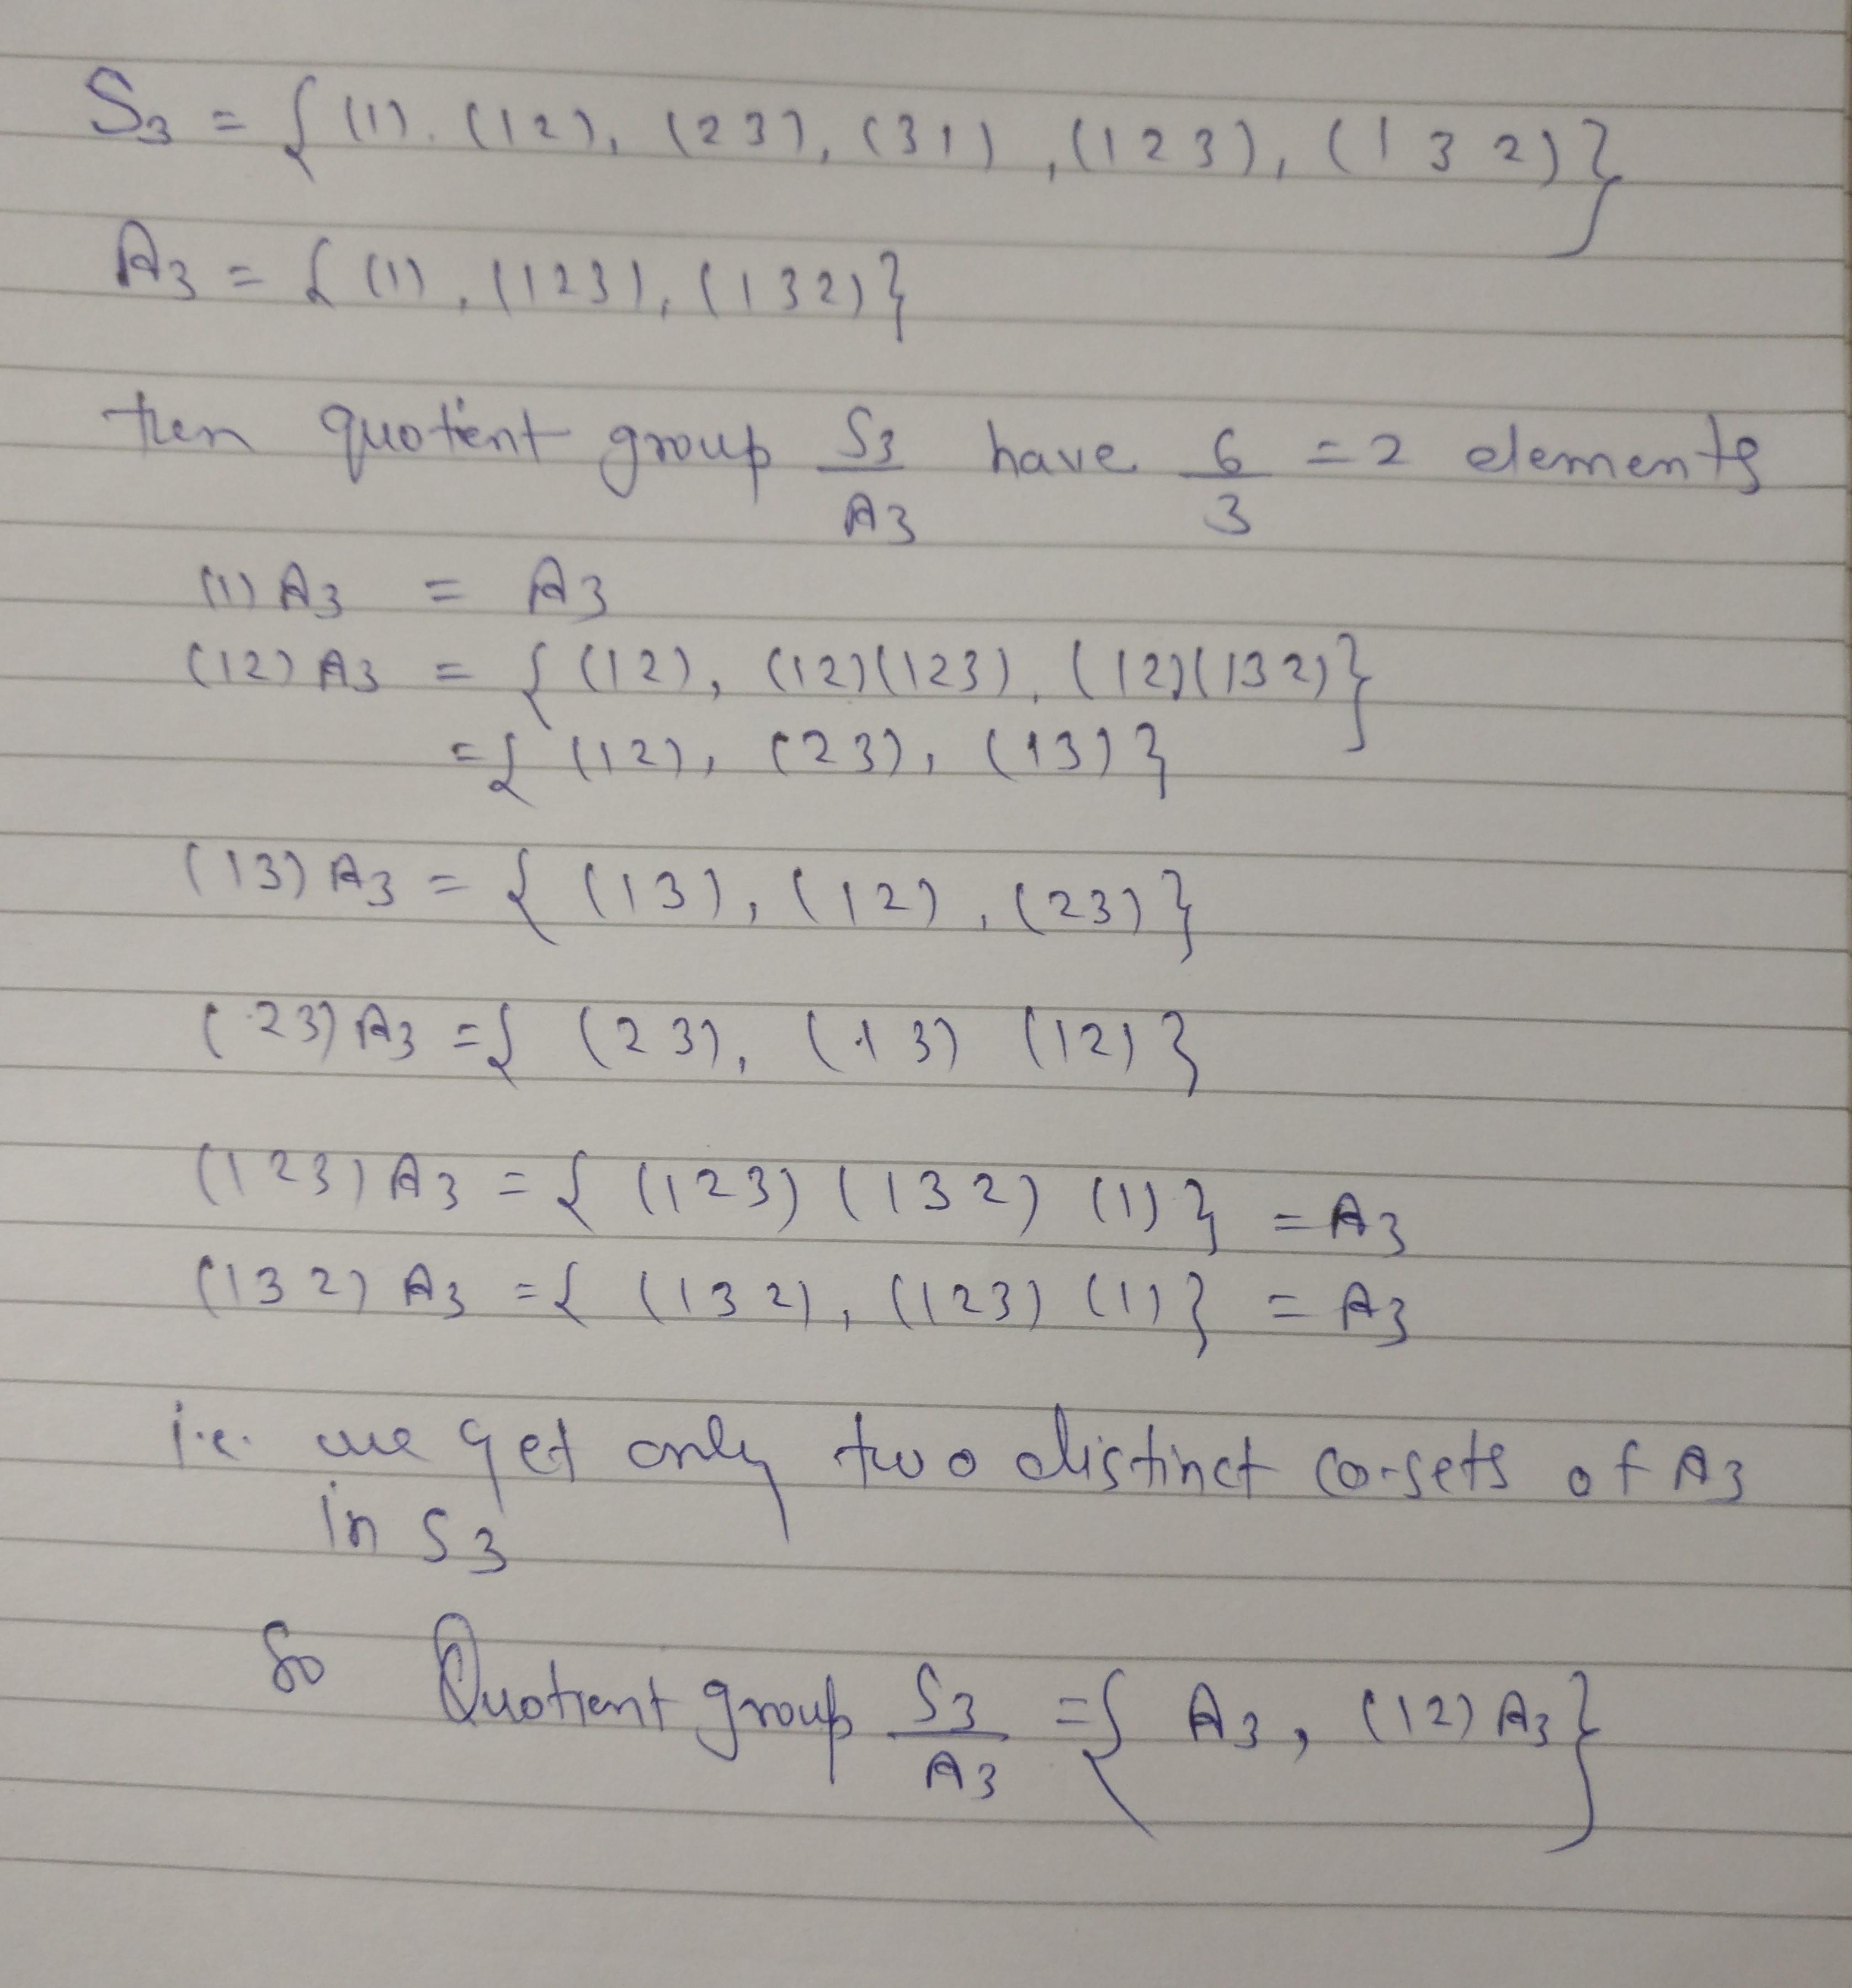 S₃ = { (1). (12), (23), (31), (123), (1 3 2)}
A₃ = { (1), (123), (132)}
then quotient group S₃/A₃ have 6/3 = 2 elements
(1) A₃ = A₃
(12) A₃ = { (12), (12)(123), (12)(132)}
= { (12), (23), (13)}
(13) A₃ = { (13), (12), (23)}
(23) A₃ = { (23), (13) (12)}
(123) A₃ = { (123) (132) (1)} = A₃
(132) A₃ = { (132), (123) (1)} = A₃
i.e. we get only two distinct co-sets of A₃
in S₃
So Quotient group S₃/A₃ = { A₃, (12) A₃}